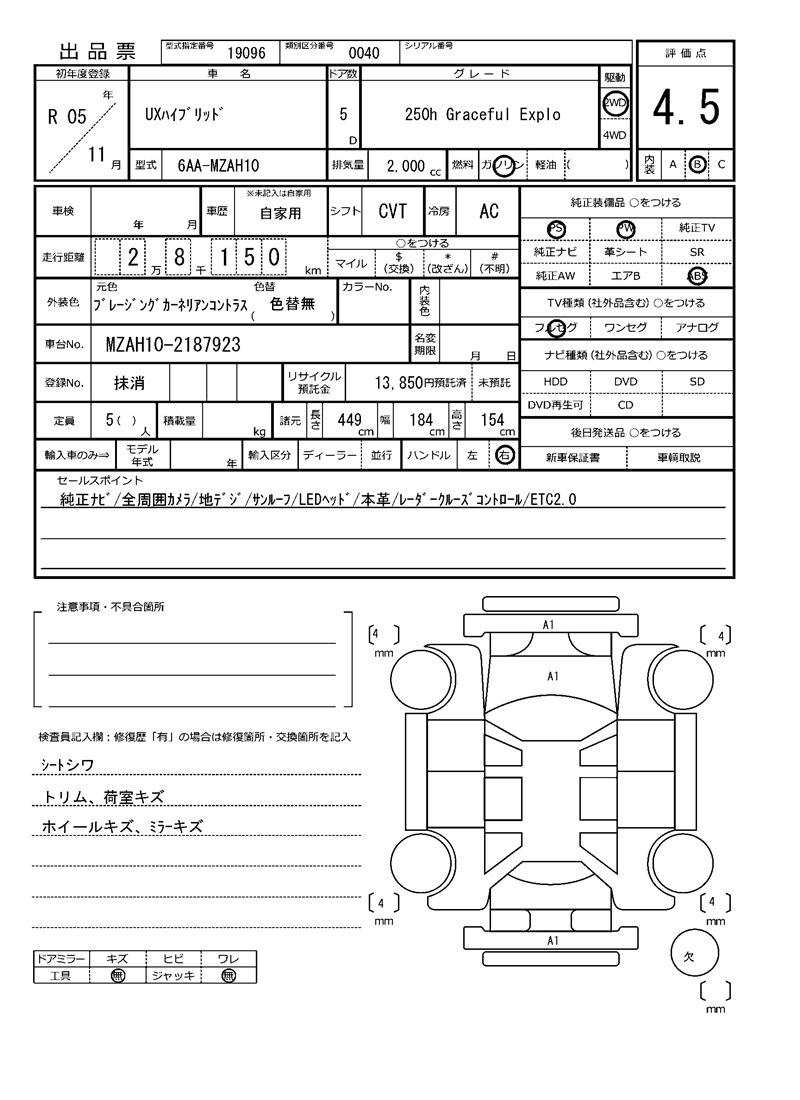 出品票 型式指定番号 19096 類別区分番号 0040 シリアル番号
評価点
4.5
内装 A B C
初年度登録 車名 ドア数 グレード 駆動
R 05 年 11 月 UXハイブリッド 5 D 250h Graceful Explo 2WD
4WD
型式 6AA-MZAH10 排気量 2,000 cc 燃料 ガソリン 軽油 ( )
車検 年 月 車歴 ※未記入は自家用 自家用 シフト CVT 冷房 AC
走行距離 2 万 8 千 1 5 0 km ○をつける
マイル $ (交換) * (改ざん) # (不明)
外装色 元色 ブレージングカーネリアンコントラス 色替 ( 色替無 ) カラーNo. 内装色
車台No. MZAH10-2187923 名変期限 月 日
登録No. 抹消 リサイクル預託金 13,850円預託済 未預託
定員 5 ( ) 人 積載量 kg 諸元 長さ 449 cm 幅 184 cm 高さ 154 cm
輸入車のみ⇒ モデル年式 年 輸入区分 ディーラー 並行 ハンドル 左 右
純正装備品 ○をつける
PS PW 純正TV
純正ナビ 革シート SR
純正AW エアB ABS
TV種類(社外品含む) ○をつける
フルセグ ワンセグ アナログ
ナビ種類(社外品含む) ○をつける
HDD DVD SD
DVD再生可 CD
後日発送品 ○をつける
新車保証書 車輌取説
セールスポイント
純正ナビ/全周囲カメラ/地デジ/サンルーフ/LEDヘッド/本革/レーダークルーズコントロール/ETC2.0
注意事項・不具合箇所
検査員記入欄:修復歴「有」の場合は修復箇所・交換箇所を記入
シートシワ
トリム、荷室キズ
ホイールキズ、ミラーキズ
ドアミラー キズ ヒビ ワレ
工具 無 ジャッキ 無
4 mm A1 4 mm
A1
4 mm 4 mm
A1
欠
mm